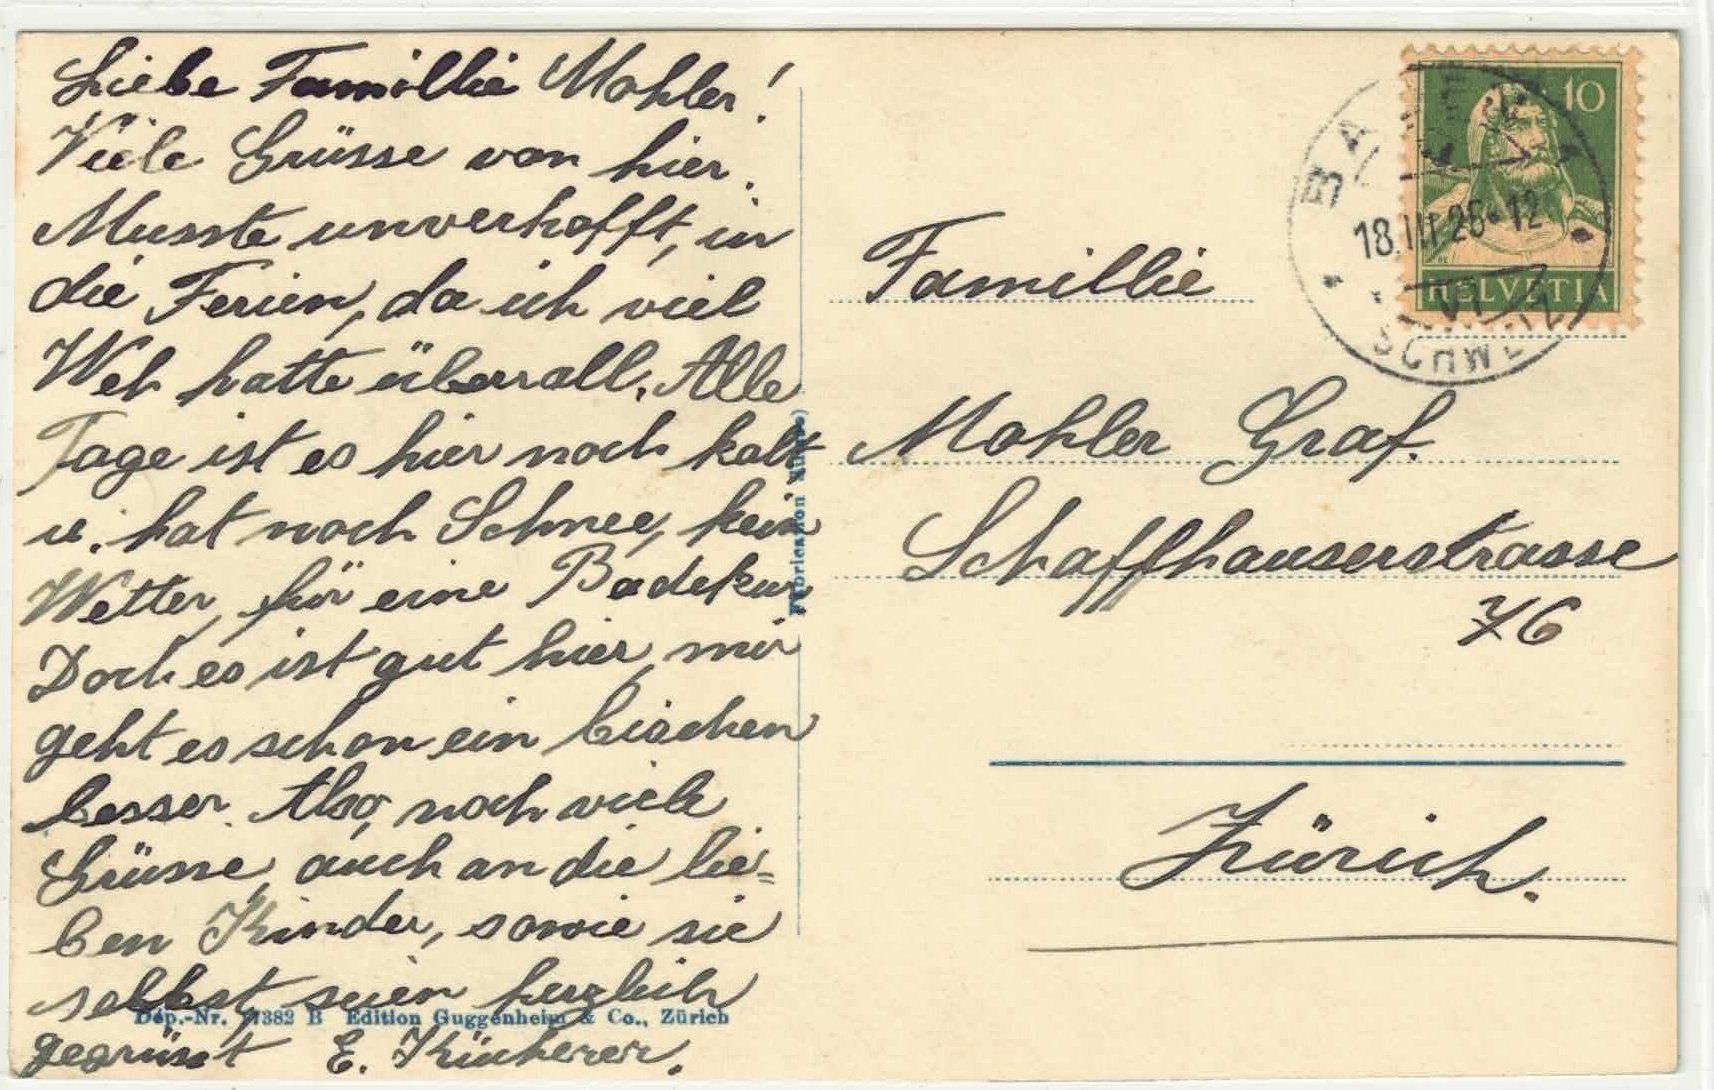 Liebe Famillie Mohler!
Viele Grüsse von hier.
Musste unverhofft, in
die Ferien, da ich viel
Weh hatte überrall. Alle
Tage ist es hier noch kalt
u. hat noch Schnee, kein
Wetter, für eine Badekur
Doch es ist gut hier, mir
geht es schon ein bischen
besser. Also, noch viele
Grüsse, auch an die lie=
ben Kinder, sowie sie
selbst seien herzlich
gegrüsst E. Kücherer.
Dép.-Nr. 11382 B Edition Guggenheim & Co., Zürich
10
HELVETIA
18.III.26-12
SCHWEIZ
Famillie
Mohler Graf.
Schaffhauserstrasse
76
Zürich.